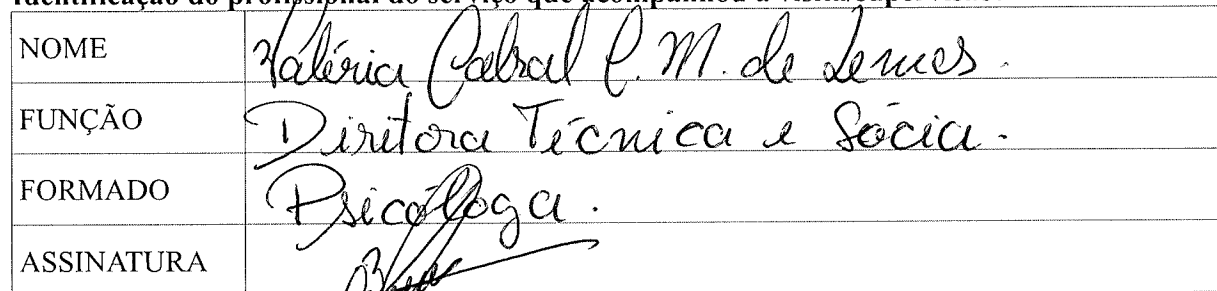 Identificação do profissional do serviço que acompanhou a visita/supervisão
NOME Valéria Cabral C. M. de Lemes.
FUNÇÃO Diretora Técnica e Sócia.
FORMADO Psicóloga.
ASSINATURA